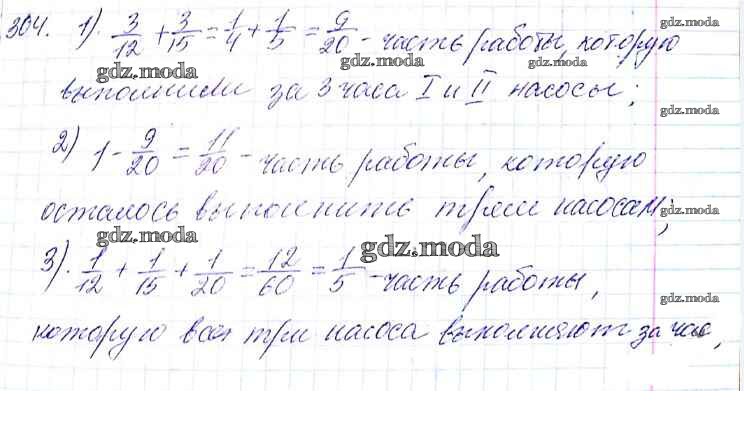 304. 1). 3/12 + 3/15 = 1/4 + 1/5 = 9/20 - часть работы, которую
gdz.moda
gdz.moda
gdz.moda
gdz.moda
выполнили за 3 часа I и II насосы;
gdz.moda
2) 1 - 9/20 = 11/20 - часть работы, которую
gdz.moda
gdz.moda
gdz.moda
осталось выполнить трём насосам;
gdz.moda
3). 1/12 + 1/15 + 1/20 = 12/60 = 1/5 - часть работы,
gdz.moda
gdz.moda
gdz.moda
которую все три насоса выполняют за час,
gdz.moda